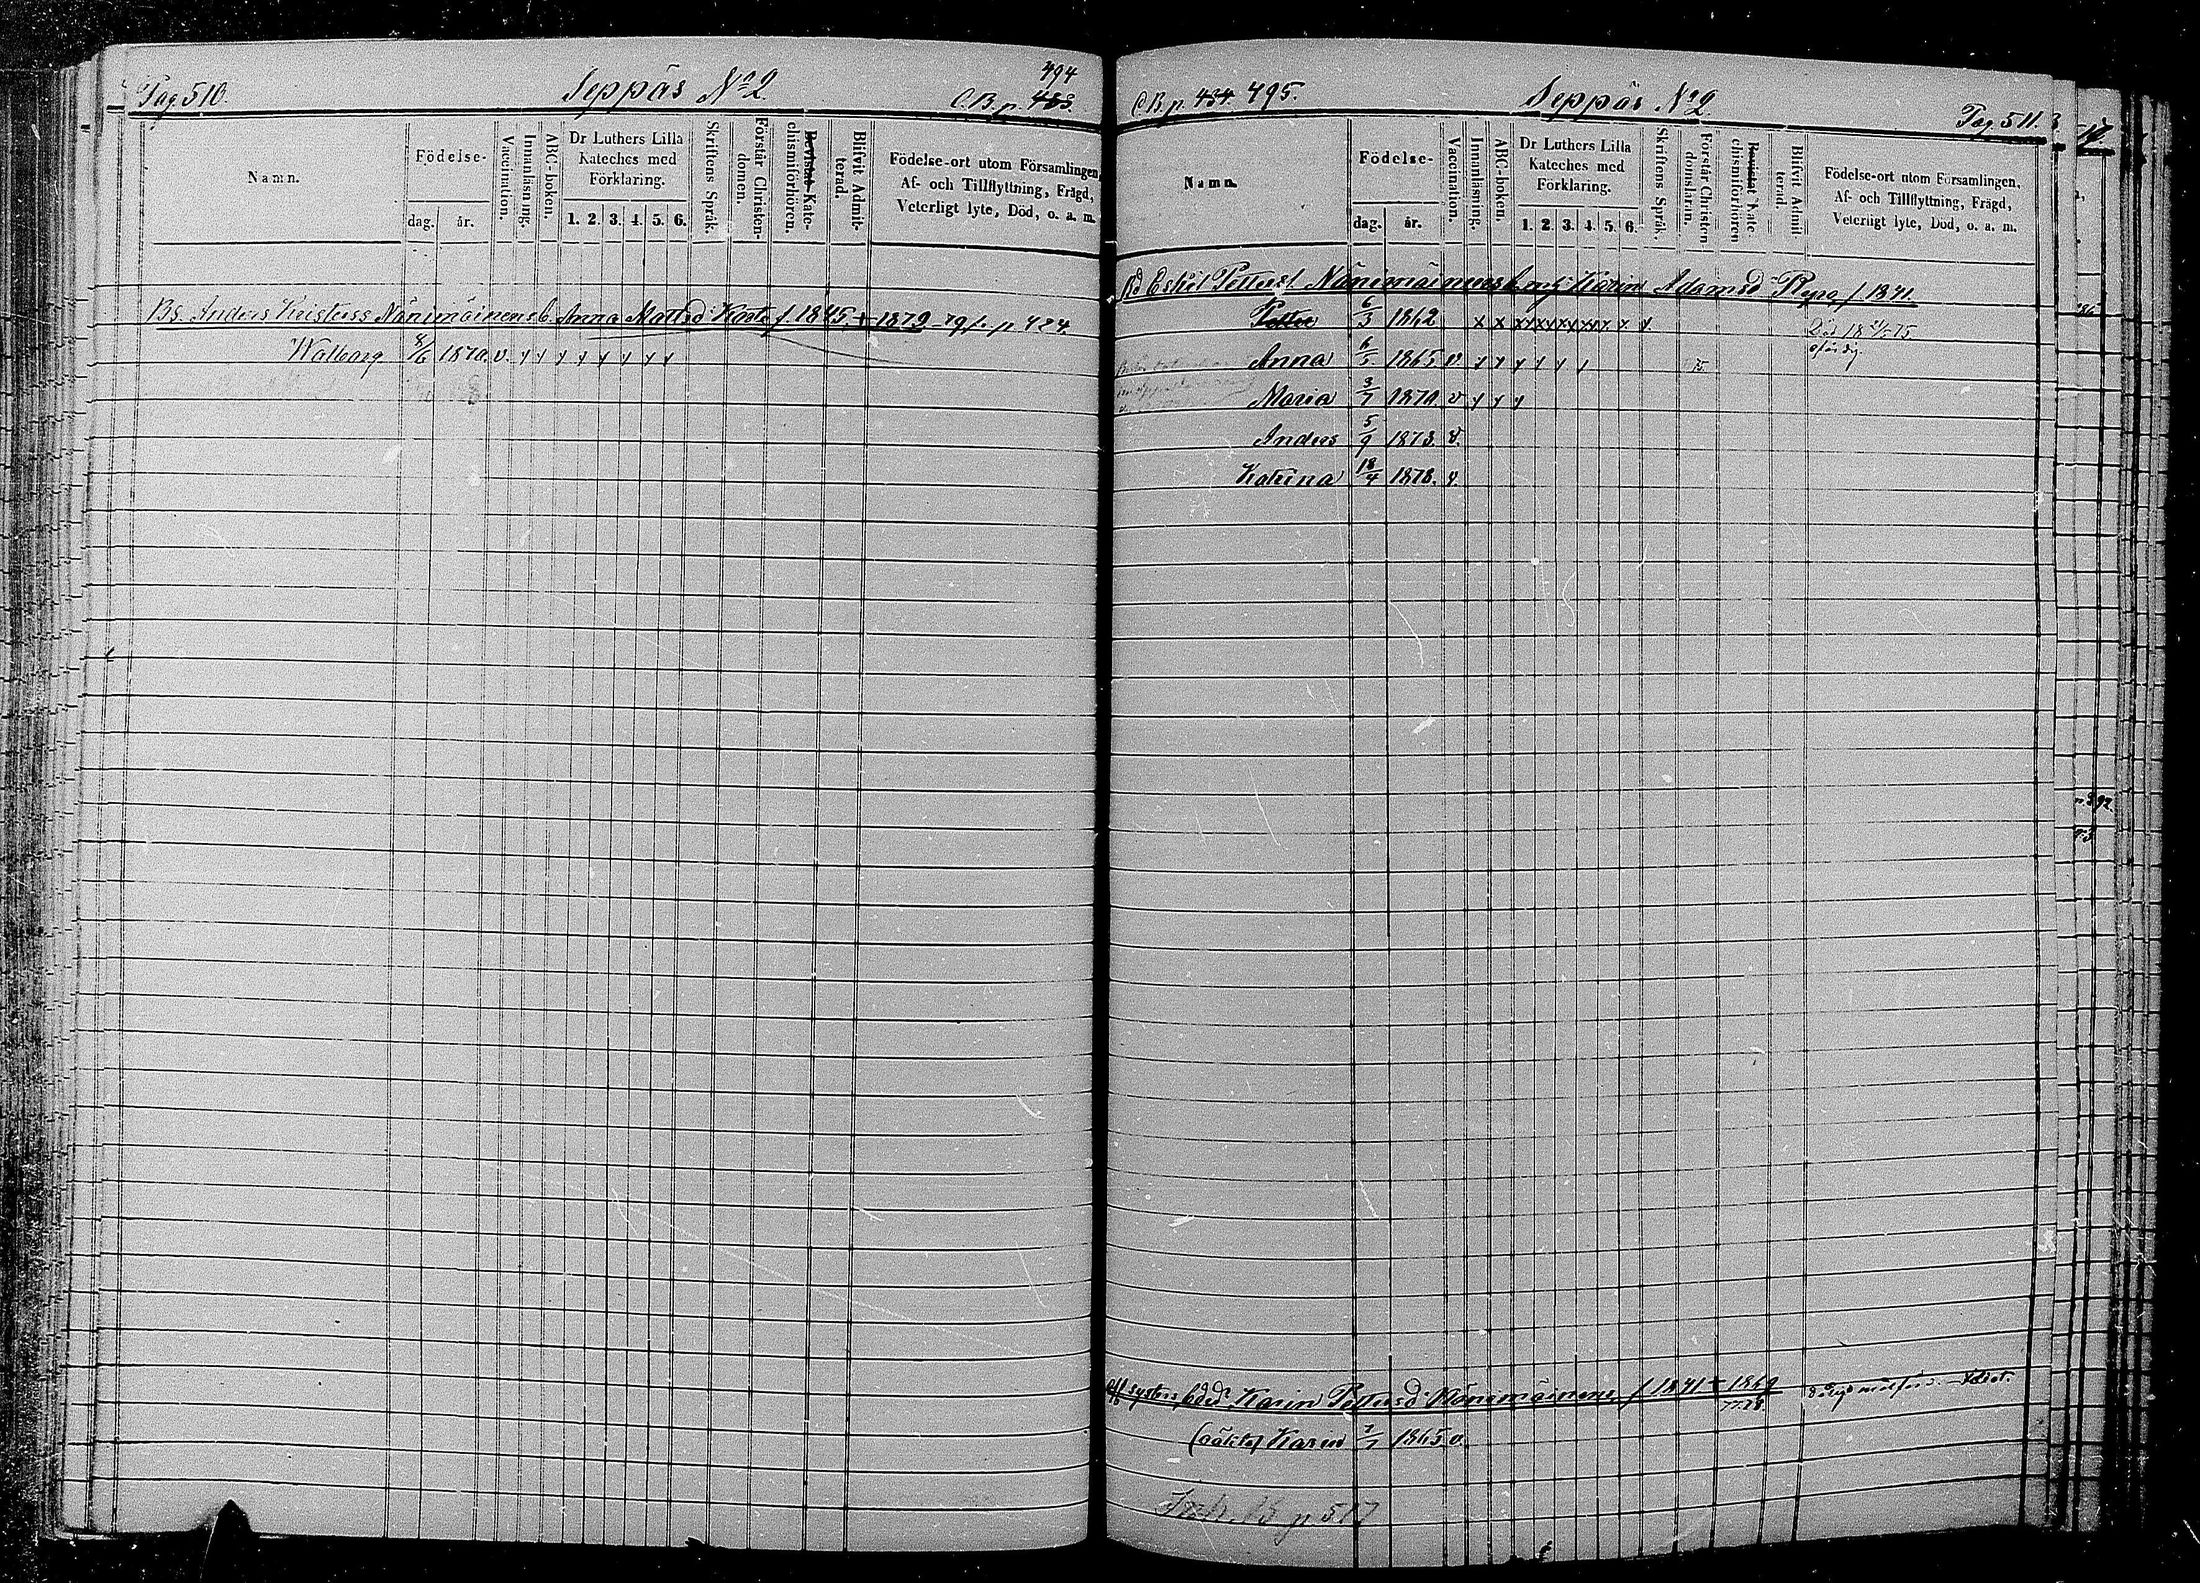 Pag. 510.
Seppäs No 2
494
C.B.p. 433.
Namn.
Födelse-
dag.
år.
Vaccination.
Innanläsning.
ABC-boken.
Dr Luthers Lilla
Kateches med
Förklaring.
1. 2. 3. 4. 5. 6.
Skriftens Språk.
Förstår Christen-
domen.
Bevistat Kate-
chismiförhören.
Blifvit Admit-
terad.
Födelse-ort utom Församlingen,
Af- och Tillflyttning, Frägd,
Veterligt lyte, Död, o. a. m.
Bs Anders Kristerss Nänimäinens h. Anna Mattsd Kosto f. 1845, + 1879
Walborg 8/6 1870. v. y y y y y y y y
C.B.p. 434. 495.
Seppäs No 2.
Pag. 511.
Namn.
Födelse-
dag.
år.
Vaccination.
Innanläsning.
ABC-boken.
Dr Luthers Lilla
Kateches med
Förklaring.
1. 2. 3. 4. 5. 6.
Skriftens Språk.
Förstår Christen
domsläran.
Bevistat Kate-
chismiförhören
Blifvit Admit
terad.
Födelse-ort utom Församlingen,
Af- och Tillflyttning, Frägd,
Veterligt lyte, Död, o. a. m.
Bd Eskil Petters Nänimäinens Karin Adamsd f 1841
Petter 6/3 1862
Anna 6/5 1865 v.
Maria 3/7 1870 v
Anders 5/9 1873. v.
Katrina 18/4 1878. v.
systers Karin Pettersd Nänimäinens f 1841 + 1869
(oäkta) Karin 7/7 1865 v.
p. 517